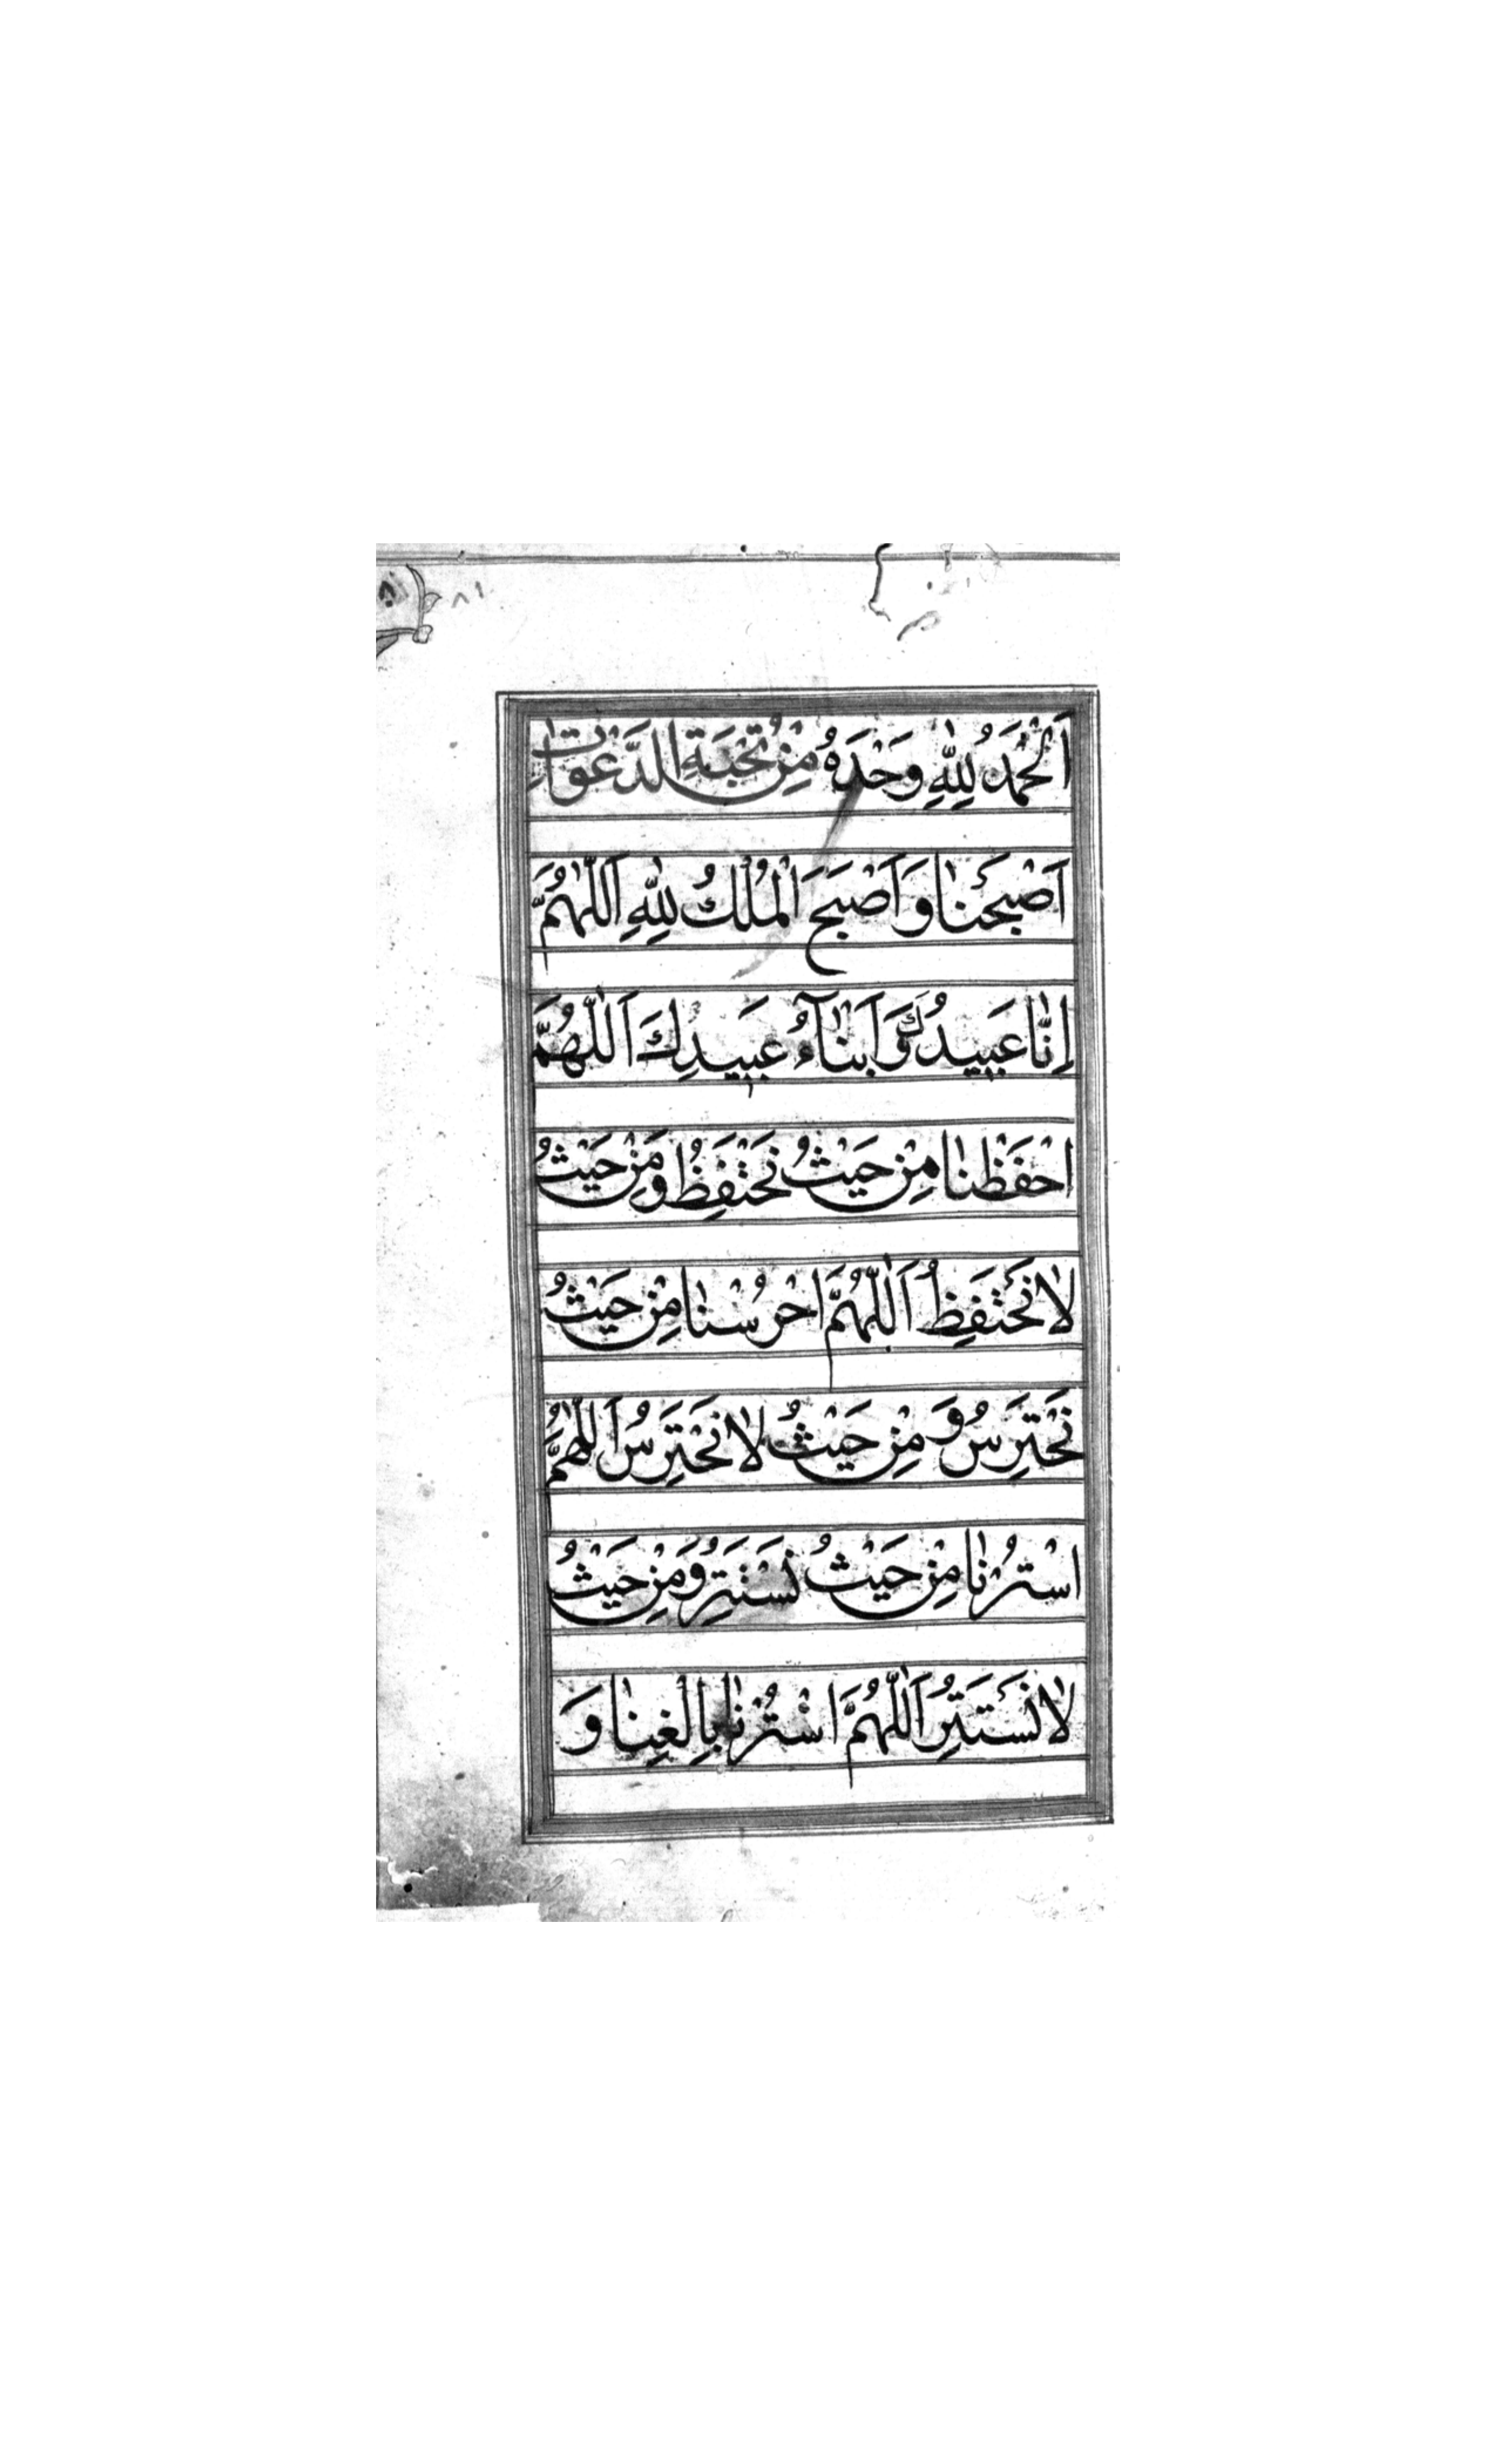 ٨١
اَلْحَمْدُ لِلّٰهِ وَحْدَهُ مِنْ نُخْبَةِ الدَّعَوَاتِ
اَصْبَحْنَا وَ اَصْبَحَ الْمُلْكُ لِلّٰهِ اَللّٰهُمَّ
اِنَّا عَبِيدُكَ وَ اَبْنَآءُ عَبِيدِكَ اَللّٰهُمَّ
احْفَظْنَا مِنْ حَيْثُ نَحْتَفِظُ وَ مِنْ حَيْثُ
لَا نَحْتَفِظُ اَللّٰهُمَّ احْرُسْنَا مِنْ حَيْثُ
نَحْتَرِسُ وَ مِنْ حَيْثُ لَا نَحْتَرِسُ اَللّٰهُمَّ
اسْتُرْنَا مِنْ حَيْثُ نَسْتَتِرُ وَ مِنْ حَيْثُ
لَا نَسْتَتِرُ اَللّٰهُمَّ اسْتُرْنَا بِالْغِنَا وَ